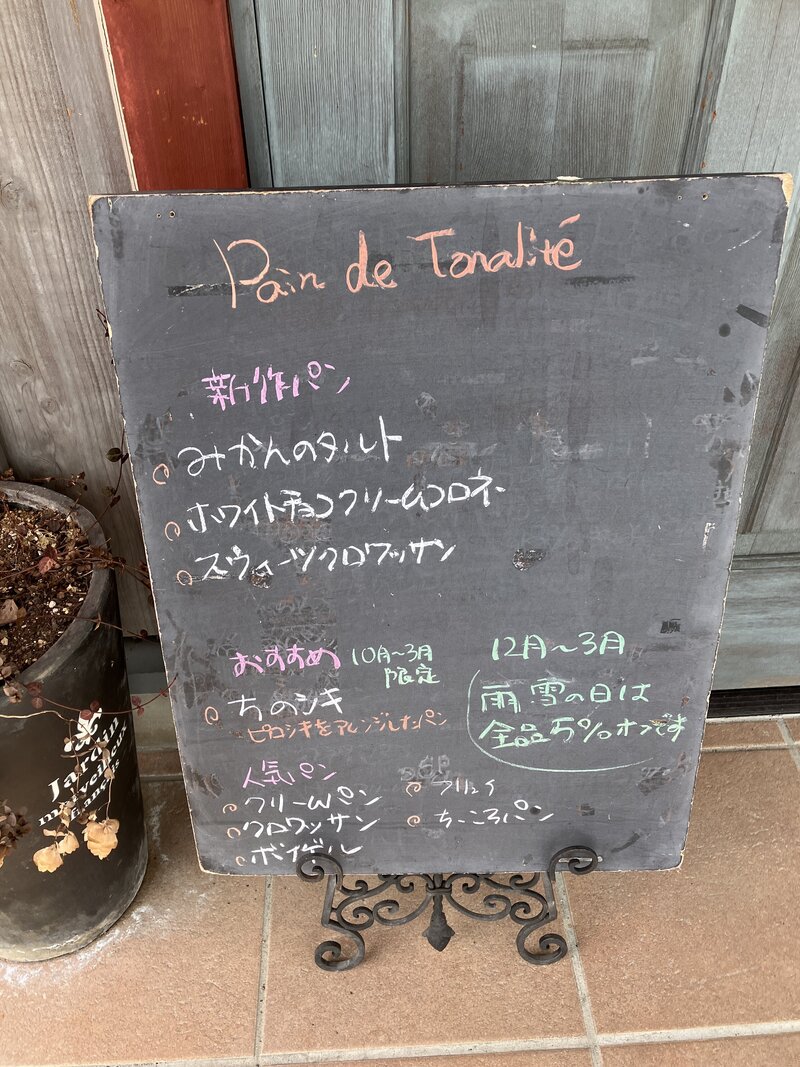 Pain de Tonalité
新作パン
みかんのタルト
ホワイトチョコクリームコロネ
スウィーツクロワッサン
おすすめ 10月〜3月
限定
ちのシキ
ピロシキをアレンジしたパン
12月〜3月
雨雪の日は
全品5%オフです
人気パン
クリームパン
クロワッサン
ボイゲル
ちーころパン
Jardin